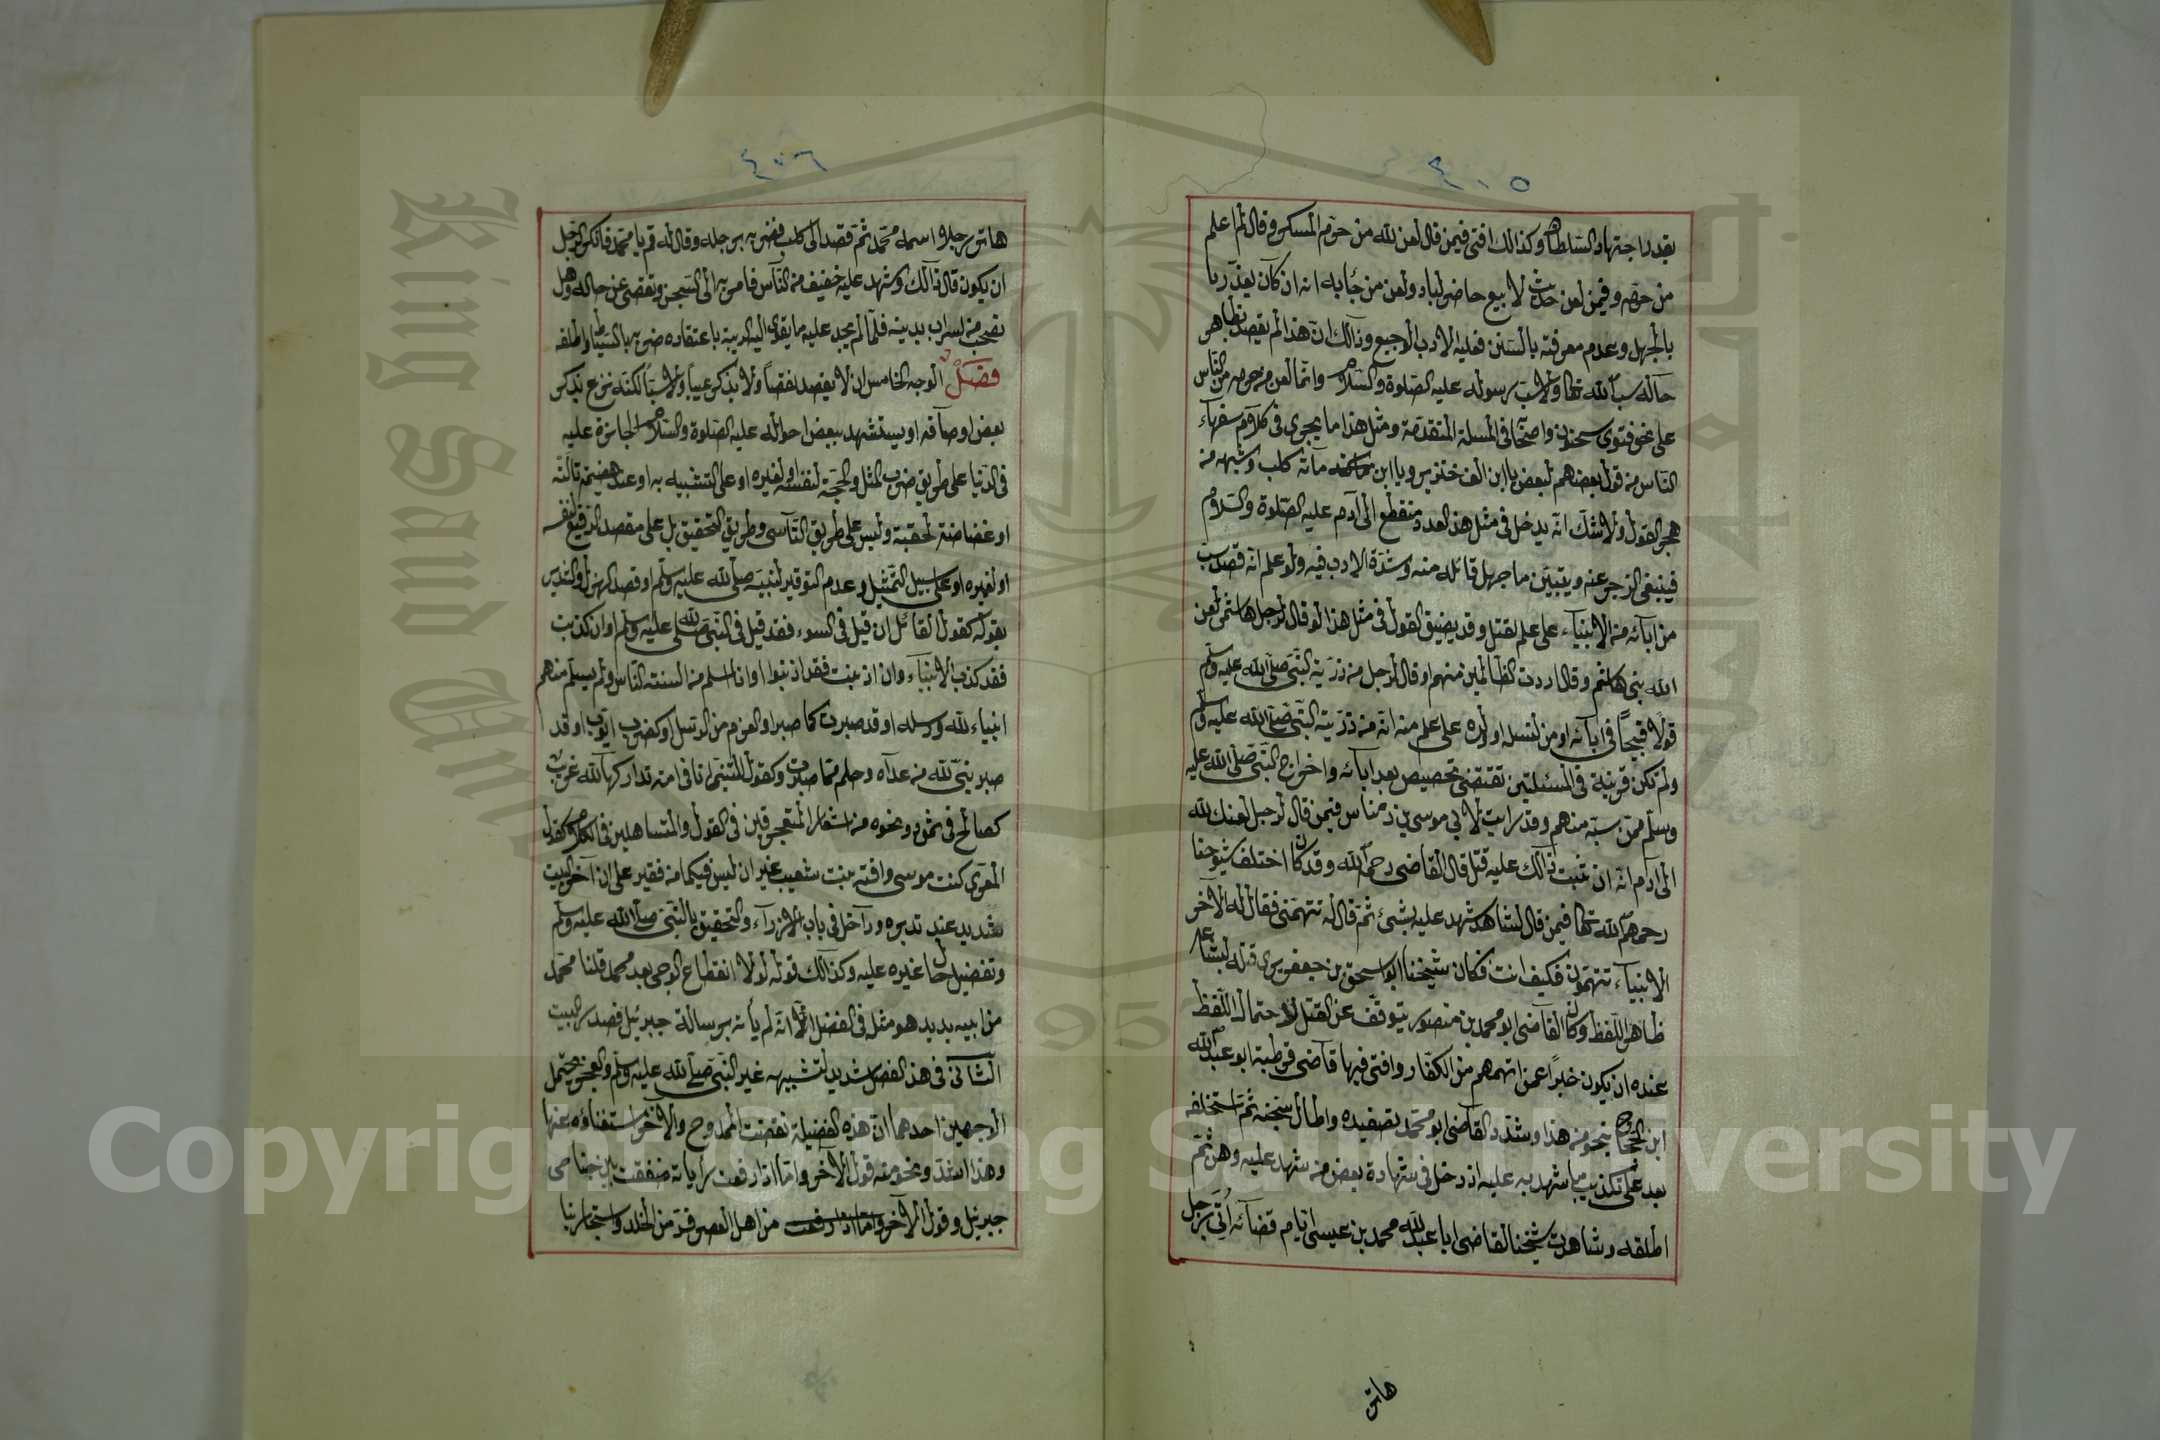 ٤٠٥
بقدر اجتهاد السلطان وكذالك افتى فيمن قال لعن الله من حرّم المسكر وقال لم اعلم
من حرّمه وفيمن لعن حديث لا يبيع حاضر لباد ولعن من جَاء به انه ان كان يعذّر با
بالجهل وعدم معرفته بالسنن فعليه الادب الوجيع وذالك ان هذا لم يقصد بظاهر
حاله سبّ الله تعا ولا سبّ رسوله عليه الصّلوة والسّلام وانما لعن من حرمه من النّاس
على نحو فتوى سحنون واصحابه فى المسئلة المتقدّمة ومثل هذا ما يجرى فى كلام سفهاء
النّاس من قول بعضهم لبعض يا ابن الف خنزير ويا ابن مائة كلب وشبهه من
هجر القول ولا شك انه يدخل فى مثل هذ العدد منقطع الى آدم عليه الصّلوة والسّلام
فينبغى الزجر عنه ويتبيّن ما جهل قائله منه وشدّة الادب فيه ولو علم انه قصد سبّ
من ابآئه من الانبيآء على علم لقتل وقد يضيق القول فى مثل هذا لو قال لرجل هاشمى لعن
الله بنى هاشم وقال اردت الظالمين منهم او قال لرجل من ذرّية النّبىّ صلّى الله عليه وسلّم
قولاً قبيحاً فى ابآئه او من نسله او ولده على علم منه انّه من ذرّيته النّبىّ صلّى الله عليه وسلّم
ولم تكن قرينة فى المسئلتين تقتضى تخصيص بعد ابآئه واخراج النّبىّ صلّى الله عليه
وسلّم ممّن سبّه منهم وقد رايت لابى موسى بن مناس فيمن قال لرجل لعنك الله
الى آدم انّه ان ثبت ذالك عليه قتل قال القاضى رحمه الله وقد كان اختلف شيوخنا
رحمهم الله تعا فيمن قال لشاهد شهد عليه بشئ ثمّ قال له تتهمنى فقال له الآخر
الانبيآء تتهمون فكيف انت فكان شيخنا ابو اسحق بن جعفر يرى قتله لبشاعة
ظاهر اللّفظ وكان القاضى ابو محمد بن منصور يتوقّف عن القتل لاحتمال اللّفظ
عنده ان يكون خبراً عمن اتهمهم من الكفار وافتى فيها قاضى قرطبة ابو عبد الله
ابن الحجّاج بنحو من هذا وشدّد القاضى ابو محمّد تصفيده واطال سجنه ثمّ استحلفه
بعد على تكذيب ما شهد به عليه اذ دخل فى شهادة بعض من شهد عليه وهن ثمّ
اطلقه وشاهدت شيخنا القاضى ابا عبد الله محمد بن عيسى ايّام قضائه اُتى برجل
هاتر
٤٠٦
هاتر رجلا واسمه محمّد ثمّ قصد الى كلب فضربه برجله وقال له قم يا محمّد فانكر الرجل
ان يكون قال ذالك وشهد عليه لفيف من النّاس فامر به الى السّجن وتقصى عن حاله وهل
يصحب من يستراب بدينه فلمّا لم يجد عليه ما يقوى الريبة باعتقاده ضربه بالسّوط واطلقه
فصل الوجه الخامس ان لا يقصد نقصاً ولا يذكر عيباً ولا سبّاً لكنّه نزع بذكر
بعض اوصافه او يستشهد ببعض احواله عليه الصّلوة والسّلام الجائزة عليه
فى الدّنيا على طريق ضرب المثل والحجّة لنفسه او لغيره او على التشبيه به او عند هضيمة نالته
او غضاضة لحقته وليس على طريق التّأسى وطريق التحقيق بل على مقصد الترفيع لنفسه
او لغيره او على سبيل التّمثيل وعدم التوقير لنبيّه صلّى الله عليه وسلّم او قصد الهزل والتنذير
بقوله كقول القائل ان قيل فىّ السوء فقد قيل فى النّبىّ صلّى الله عليه وسلّم او ان كذبت
فقد كذب الانبيآء وان اذنبت فقد اذنبوا او انا اسلم من السنة النّاس ولم يسلم منهم
انبياء الله ورسله او قد صبرت كما صبر اولو العزم من الرّسل او كصبر ايّوب او قد
صبر نبىّ الله من عداه وحلم على ما صبرت وكقول المتنبّى انا فى امة تداركها الله غريب
كصالح فى ثمود ونحوه من اشعار المتعجرفين فى القول والمتساهلين فى الكلام كقول
المعرّى كنت موسى وافته بنت شعيب غير ان ليس فيكما من فقير على ان آخر البيت
شديد عند تدبره وداخل فى باب الازرآء والتحقير بالنّبىّ صلّى الله عليه وسلّم
وتفضيل حال غيره عليه وكذالك قوله لولا انقطاع الوحى بعد محمد قلنا محمّد
من ابيه بديد هو مثله فى الفضل الّا انّه لم يأته برسالة جبرئيل فصدر البيت
الثانى فى هذ الفصل شديد لتشبيهه غير النّبىّ صلّى الله عليه وسلّم والعجز محتمل
الوجهين احدهما ان هذه الفضيلة نقصت الممدوح والآخر استغناؤه عنها
وهذا اشدّ ونحو منه قول الآخر واذا ما رفعت رأياته صفقت بين جناحى
جبرئيل وقول الآخر من اهل العصر فرّ من الخلد واستجار بنا
King Saud University
1957
Copyright © King Saud University